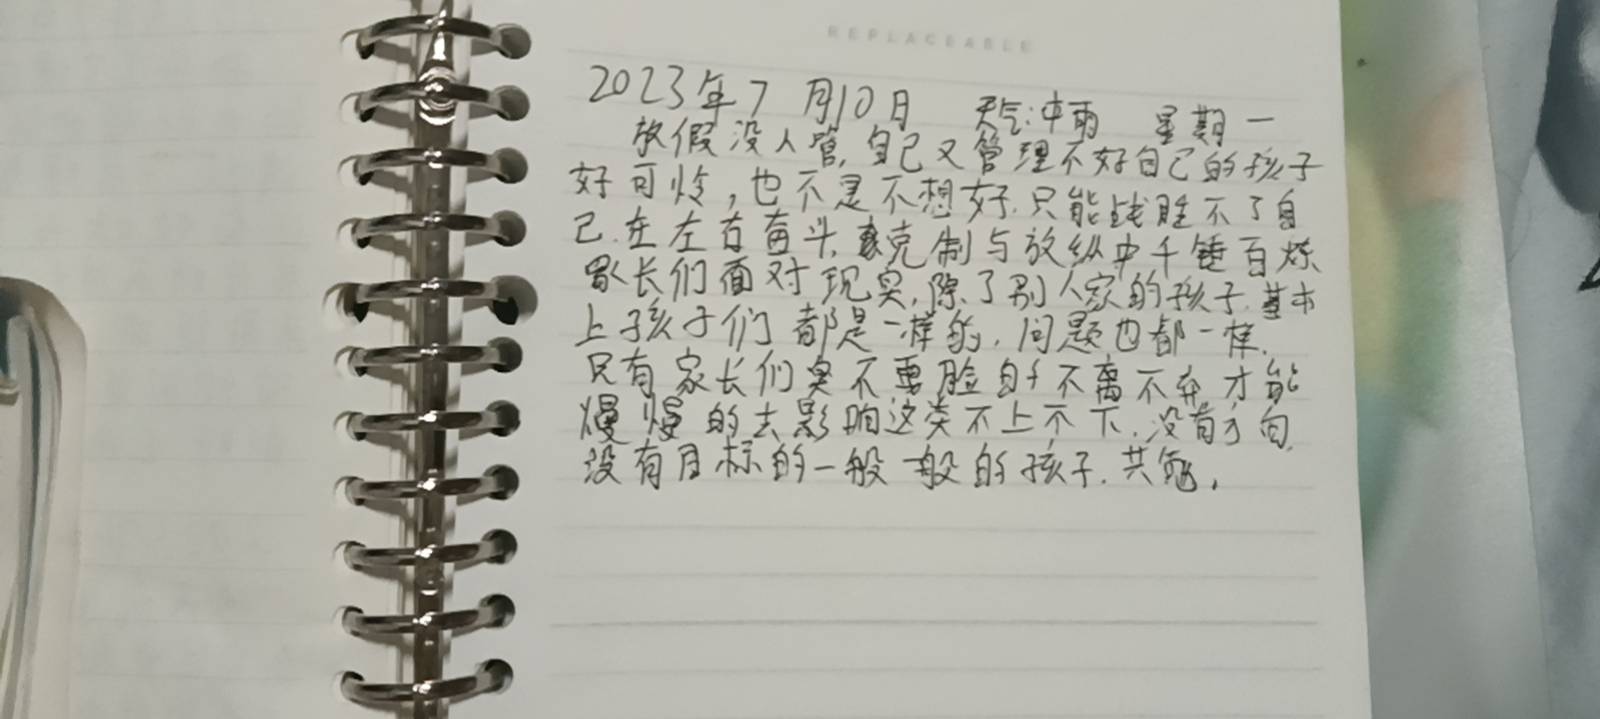 REPLACEABLE
2023年7月10日 天气:中雨 星期一
放假没人管,自己又管理不好自己的孩子
好可怜,也不是不想好.只能战胜不了自
己.在左右奋斗,克制与放纵中千锤百炼
家长们面对现实,除了别人家的孩子.基本
上孩子们都是一样的,问题也都一样.
只有家长们臭不要脸自于不离不弃,才能
慢慢的去影响这类不上不下.没有方向,
没有目标的一般一般的孩子.共勉,